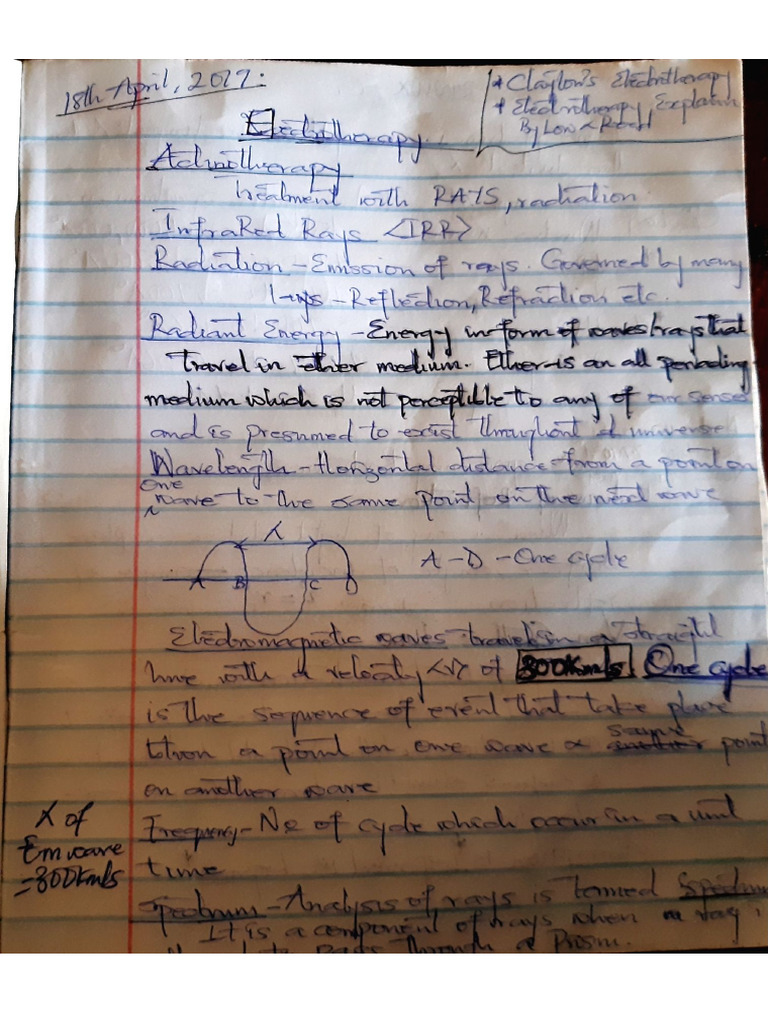 18th April, 2017:
* Clayton's Electrotherapy
* Electrotherapy Explain
By Low & Reed
Electrotherapy
Actinotherapy
Treatment with RAYS, radiation
InfraRed Rays <IRR>
Radiation - Emission of rays. Governed by many
laws - Reflection, Refraction etc.
Radiant Energy - Energy in form of waves/rays that
travel in ether medium. Ether is an all pervading
medium which is not perceptible to any of our senses
and is presumed to exist throughout d universe
Wavelength - Horizontal distance from a point on
one
wave to the same point on the next wave
λ
A B C D
A - D - One cycle
Electromagnetic waves travels in a straight
line with a velocity <V> of 300Kmls. One cycle
is the sequence of event that take place
btwn a point on one wave & another same point
on another wave
λ of
Em wave
= 300Kmls
Frequency - No of cycle which occur in a unit
time
Spectrum - Analysis of rays is termed Spectrum
It is a component of rays when a ray
pass through a Prism.